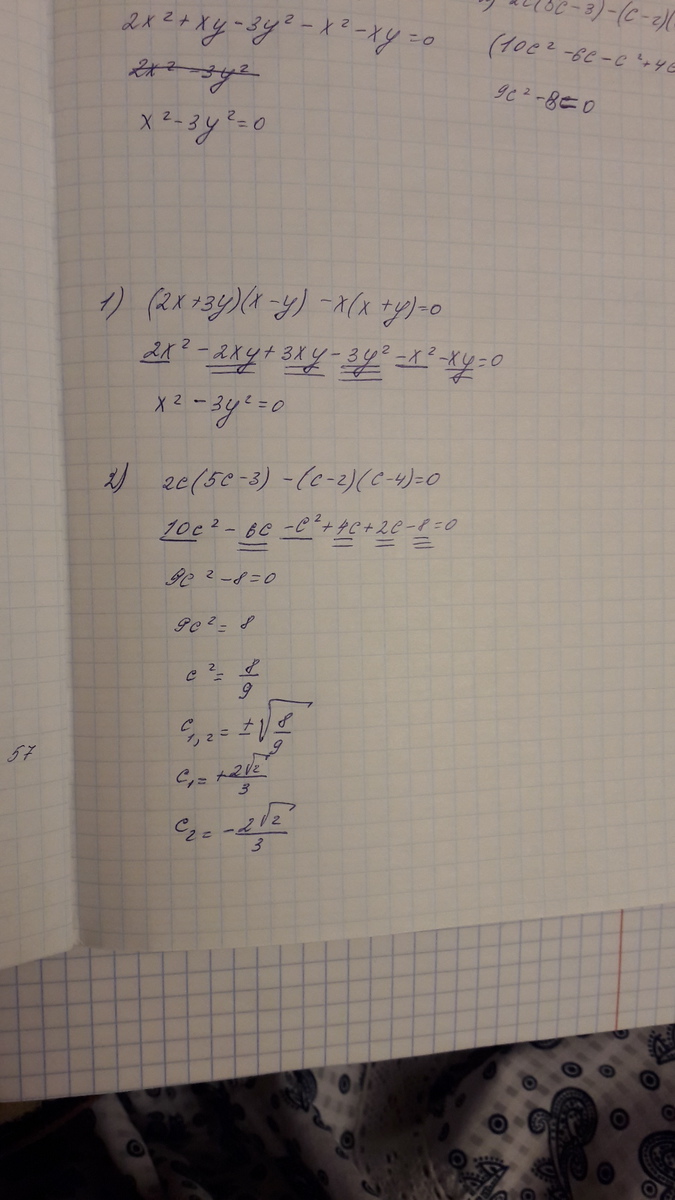 2x² + xy - 3y² - x² - xy = 0
2x² - 3y²
x² - 3y² = 0
2c(5c-3) - (c-2)(
(10c² - 6c - c² + 4c
9c² - 8 = 0
1) (2x+3y)(x-y) - x(x+y) = 0
2x² - 2xy + 3xy - 3y² - x² - xy = 0
x² - 3y² = 0
2) 2c(5c-3) - (c-2)(c-4) = 0
10c² - 6c - c² + 4c + 2c - 8 = 0
9c² - 8 = 0
9c² = 8
c² = 8/9
c₁,₂ = ±√8/9
57
c₁ = +2√2/3
c₂ = -2√2/3